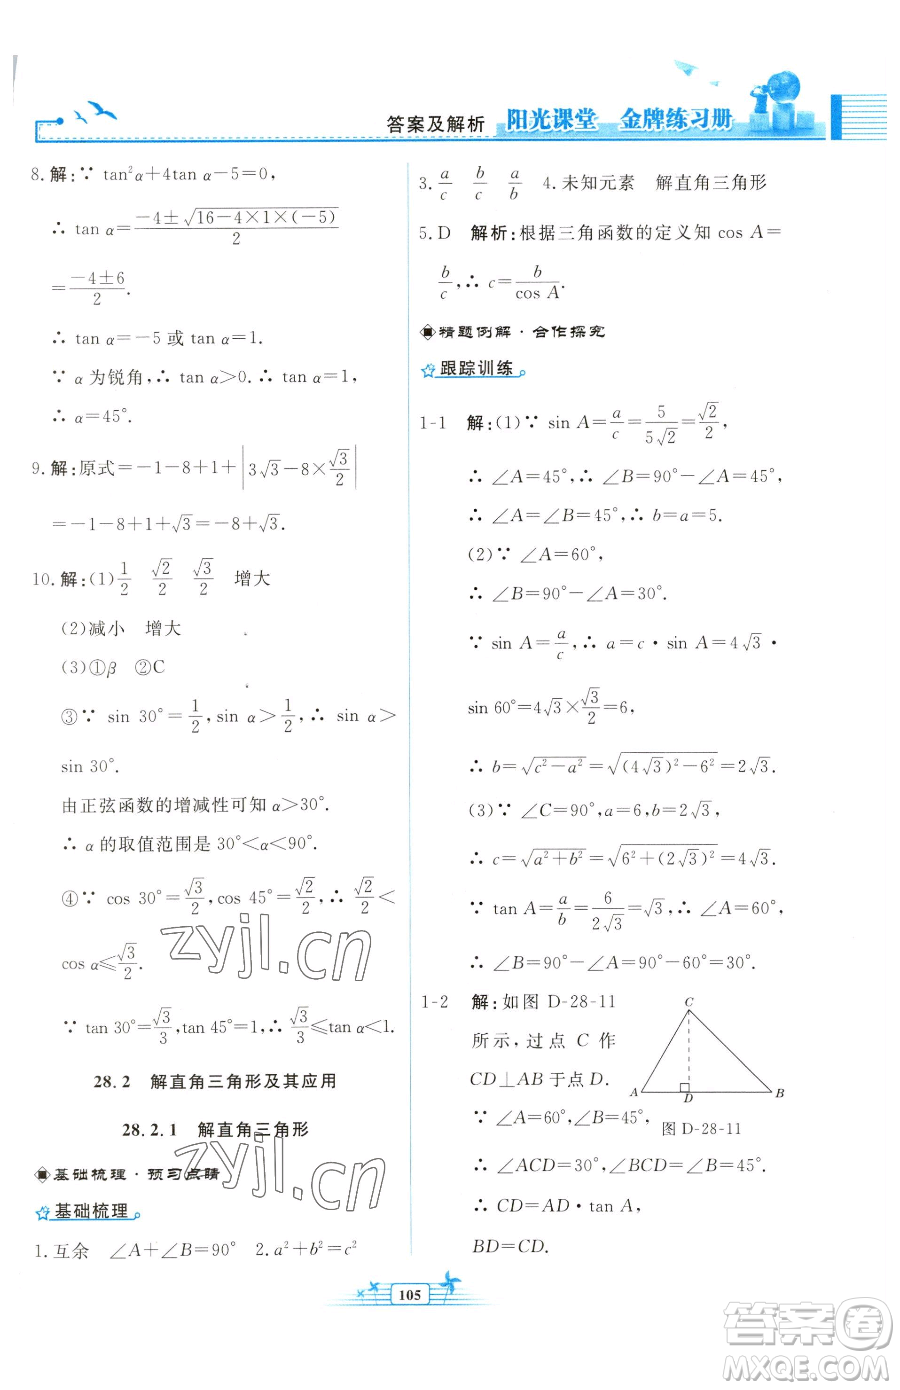 答案及解析 阳光课堂 金牌练习册
8. 解:∵ tan²α+4tan α-5=0,
∴ tan α=(-4±√(16-4×1×(-5)))/2
=(-4±6)/2.
∴ tan α=-5 或 tan α=1.
∵ α 为锐角,∴ tan α>0. ∴ tan α=1,
∴ α=45°.
9. 解:原式=-1-8+1+|3√3-8×√3/2|
=-1-8+1+√3=-8+√3.
10. 解:(1) 1/2 √2/2 √3/2 增大
(2)减小 增大
(3)①β ②C
③∵ sin 30°=1/2, sin α>1/2, ∴ sin α>
sin 30°.
由正弦函数的增减性可知 α>30°.
∴ α 的取值范围是 30°<α<90°.
④∵ cos 30°=√3/2, cos 45°=√2/2, ∴ √2/2<
cos α≤√3/2.
∵ tan 30°=√3/3, tan 45°=1. ∴ √3/3≤tan α<1.
28.2 解直角三角形及其应用
28.2.1 解直角三角形
基础梳理·预习点睛
基础梳理
1. 互余 ∠A+∠B=90° 2. a²+b²=c²
3. a/c b/c a/b 4. 未知元素 解直角三角形
5. D 解析:根据三角函数的定义知 cos A=
b/c, ∴ c=b/cos A.
精题例解·合作探究
跟踪训练
1-1 解:(1)∵ sin A=a/c=5/(5√2)=√2/2,
∴ ∠A=45°, ∴ ∠B=90°-∠A=45°,
∴ ∠A=∠B=45°, ∴ b=a=5.
(2)∵ ∠A=60°,
∴ ∠B=90°-∠A=30°.
∵ sin A=a/c, ∴ a=c·sin A=4√3·
sin 60°=4√3×√3/2=6,
∴ b=√(c²-a²)=√((4√3)²-6²)=2√3.
(3)∵ ∠C=90°, a=6, b=2√3,
∴ c=√(a²+b²)=√(6²+(2√3)²)=4√3.
∵ tan A=a/b=6/(2√3)=√3, ∴ ∠A=60°,
∴ ∠B=90°-∠A=90°-60°=30°.
1-2 解:如图 D-28-11
所示,过点 C 作
CD⊥AB 于点 D.
∵ ∠A=60°, ∠B=45°,
∴ ∠ACD=30°, ∠BCD=∠B=45°,
∴ CD=AD·tan A,
BD=CD.
C
A D B
图 D-28-11
105
zyjl.cn
zyjl.cn
答案圈
MXQE.COM